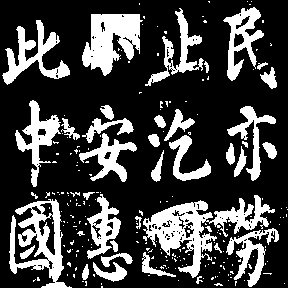 民亦勞
止汔可
小安惠
此中國